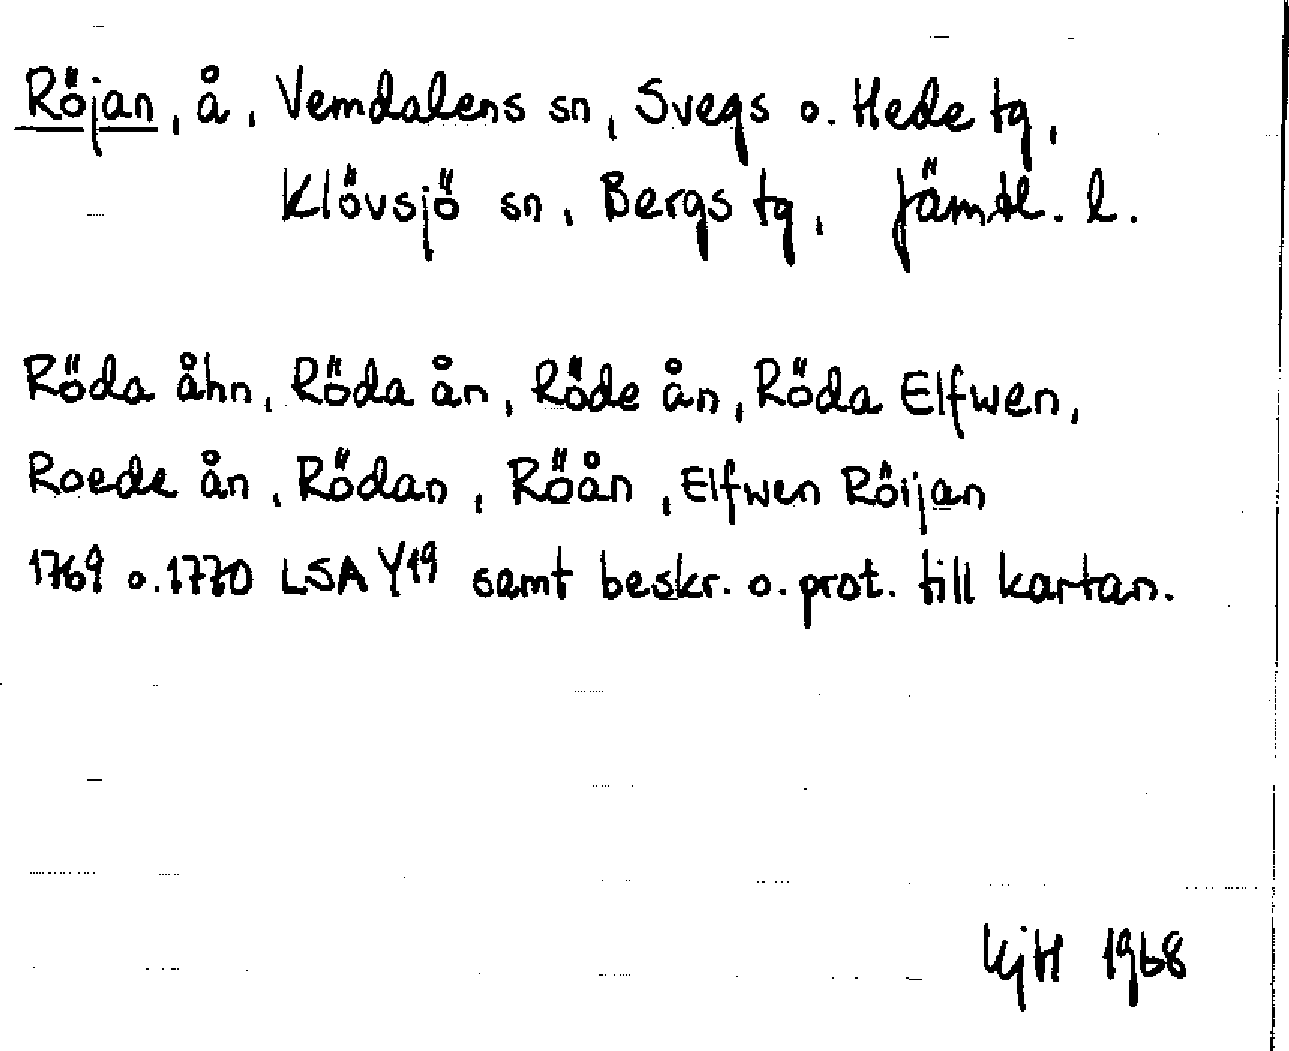 Röjan, å, Vemdalens sn, Svegs o. Hede tg,
Klövsjö sn, Bergs tg, Jämtl. l.
Röda åhn, Röda ån, Röde ån, Röda Elfwen,
Roede ån, Rödan, Röån, Elfwen Röijan
1769 o. 1770 LSA Y19 samt beskr. o. prot. till kartan.
KjH 1968